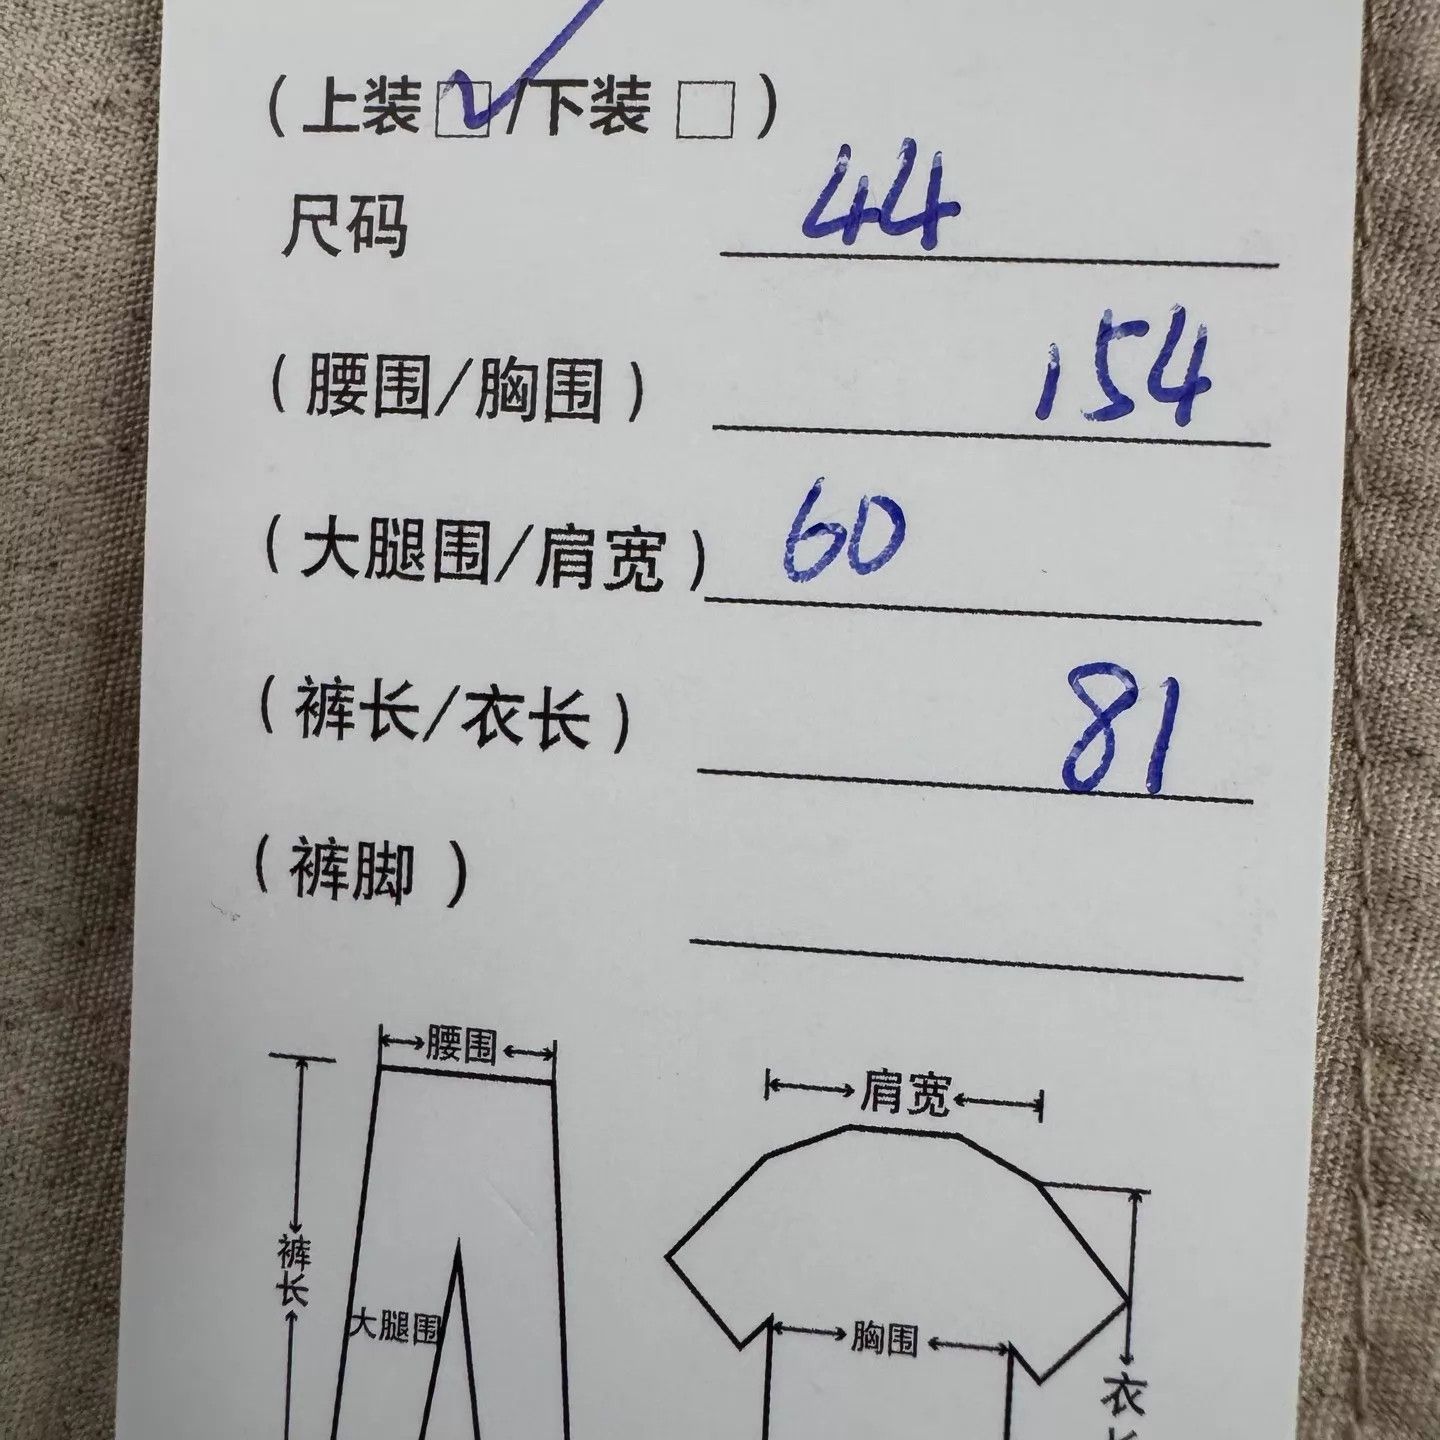 (上装☑/下装□)
尺码 44
(腰围/胸围) 154
(大腿围/肩宽) 60
(裤长/衣长) 81
(裤脚)
腰围
肩宽
裤长
大腿围
胸围
衣